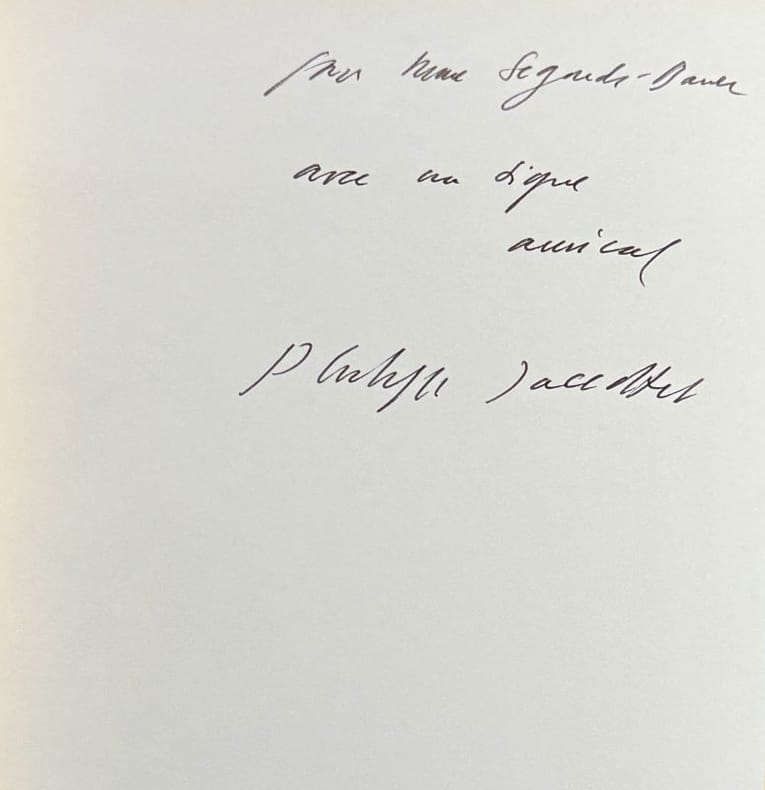 pour Mme Segonds-Bauer
avec un signe
amical
Philippe Jaccottet